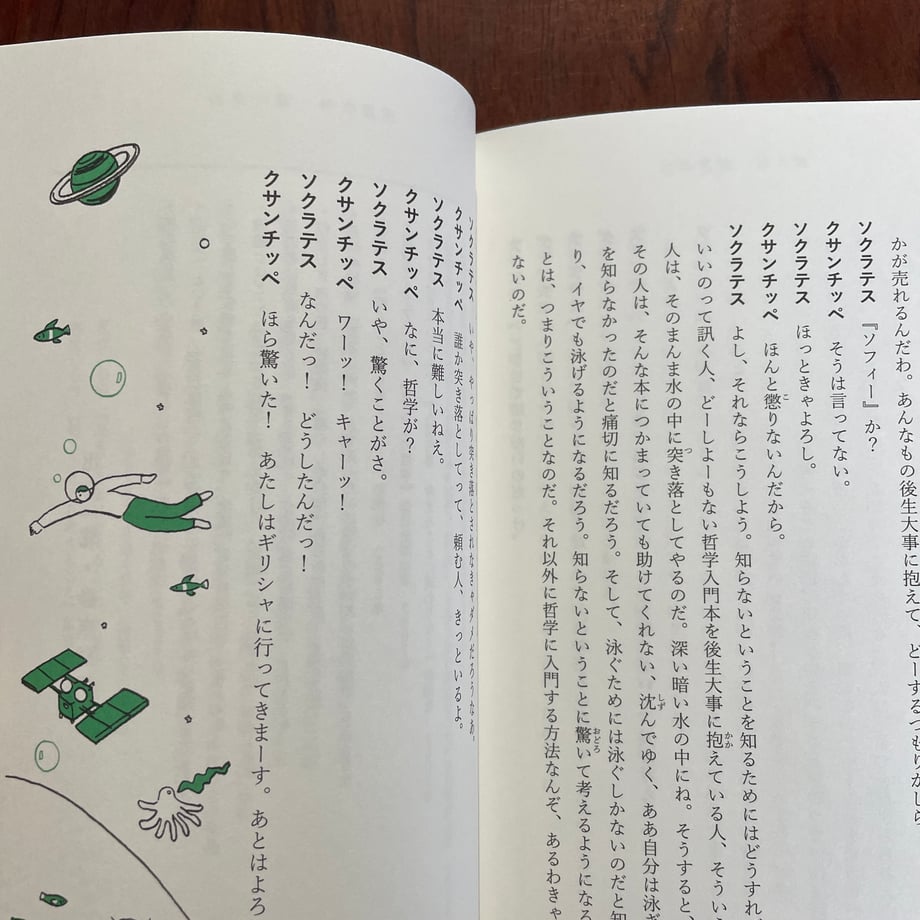 かが売れるんだわ。あんなもの後生大事に抱えて、どーするつもりかしら
ソクラテス 『ソフィー』か?
クサンチッペ そうは言ってない。
ソクラテス ほっときゃよろし。
クサンチッペ ほんと懲りないんだから。
ソクラテス よし、それならこうしよう。知らないということを知るためにはどうすれ
いいのって訊く人、どーしよーもない哲学入門本を後生大事に抱えている人、そうい
人は、そのまんま水の中に突き落としてやるのだ。深い暗い水の中にね。そうすると、
その人は、そんな本につかまっていても助けてくれない、沈んでゆく、ああ自分は泳
を知らなかったのだと痛切に知るだろう。そして、泳ぐためには泳ぐしかないのだと知
り、イヤでも泳げるようになるだろう。知らないということに驚いて考えるようになろ
とは、つまりこういうことなのだ。それ以外に哲学に入門する方法なんぞ、あるわきゃ
ないのだ。
ソクラテス いや、やっぱり突き落とされなきゃダメだろうなあ。
クサンチッペ 誰か突き落としてって、頼む人、きっといるよ。
ソクラテス 本当に難しいねえ。
クサンチッペ なに、哲学が?
ソクラテス いや、驚くことがさ。
クサンチッペ ワーッ! キャーッ!
ソクラテス なんだっ! どうしたんだっ!
クサンチッペ ほら驚いた! あたしはギリシャに行ってきまーす。あとはよろ